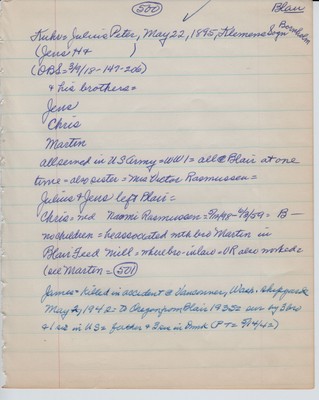 (500)
Blair
Kuhr = Julius Peter, May 22, 1895, Klemens Sogn
Bornholm
(Jens H+ )
(OBS = 3/9/18-147-206)
+ his brothers =
Jens
Chris
Martin
all served in US Army = WW1 = all @ Blair at one
time = also sister = Mrs Victor Rasmussen =
Julius & Jens left Blair =
Chris = md Naomi Rasmussen = B—
no children = he associated with bro Martin in
Blair Feed Mill = where bro-in-law = VR also worked =
(see Martin = (501)
James = Killed in accident @ Vancouver, Wash. shipyards
May 1942 = To Oregon from Blair 1935 = sur by 3 bro
& 1 sis in US = father & in Dmk (PT = 5/14/42)